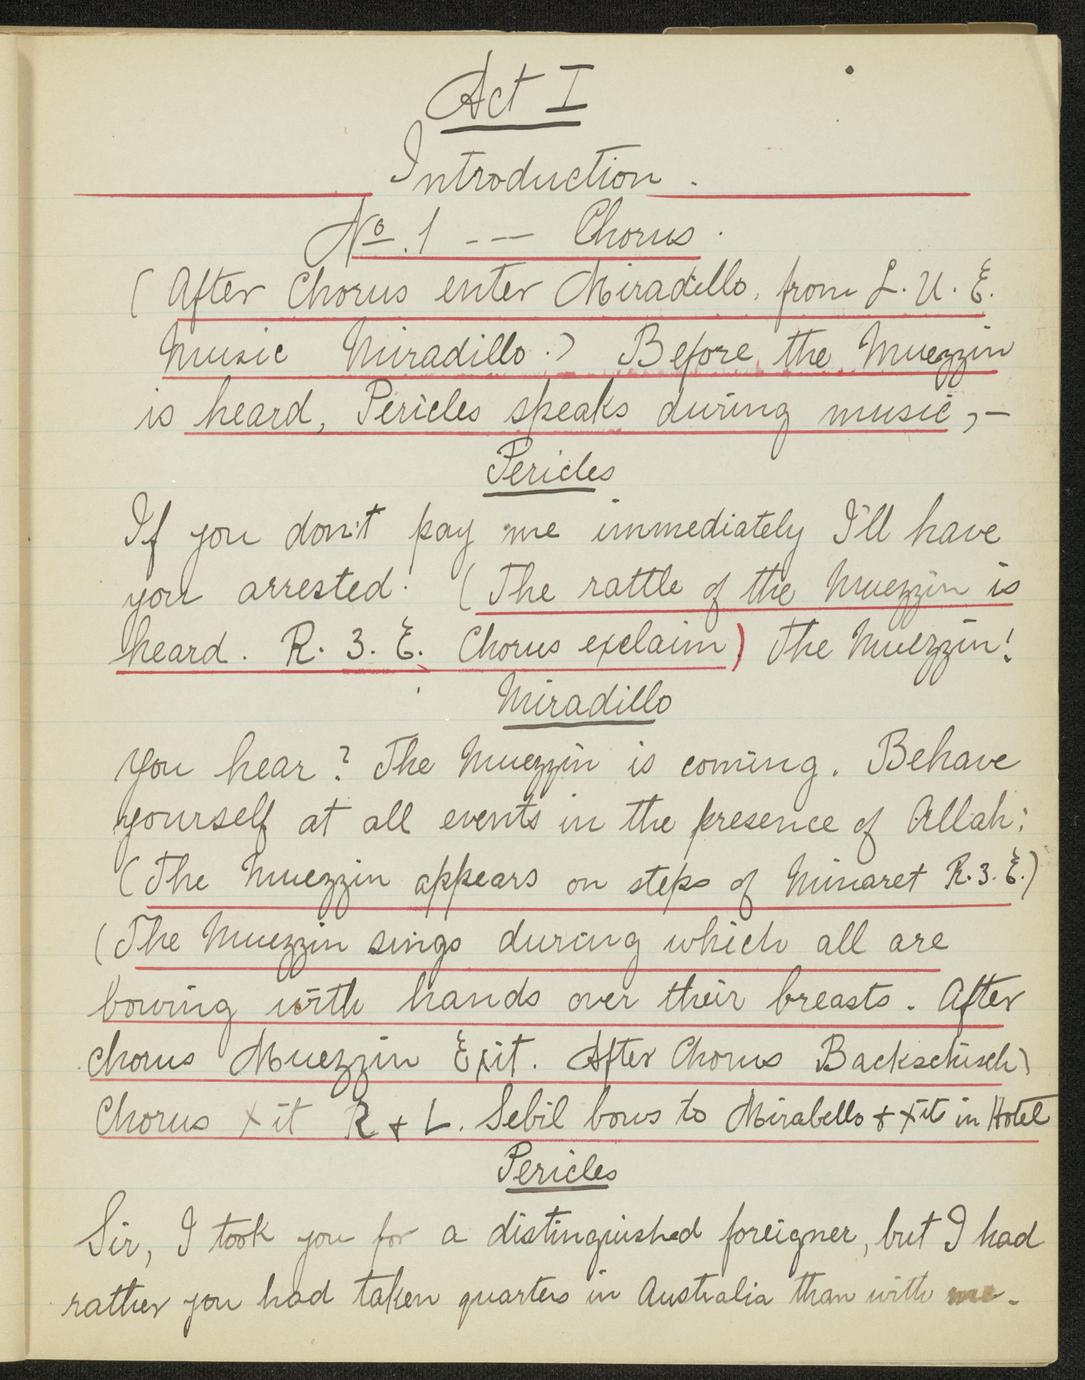 Act I
Introduction.
No. 1 --- Chorus.
(After Chorus enter Miradillo, from L. U. E.
Music Miradillo.) Before the Muezzin
is heard, Pericles speaks during music,—
Pericles
If you don't pay me immediately I'll have
you arrested. (The rattle of the Muezzin is
heard. R. 3. E. Chorus exclaim) The Muezzin!
Miradillo
You hear? The Muezzin is coming. Behave
yourself at all events in the presence of Allah:
(The Muezzin appears on steps of Minaret R. 3. E.)
(The Muezzin sings during which all are
bowing with hands over their breasts. After
chorus Muezzin Exit. After Chorus Backschisch)
Chorus xit R + L. Sebil bows to Mirabello + xits in Hotel
Pericles
Sir, I took you for a distinguished foreigner, but I had
rather you had taken quarters in Australia than with me.